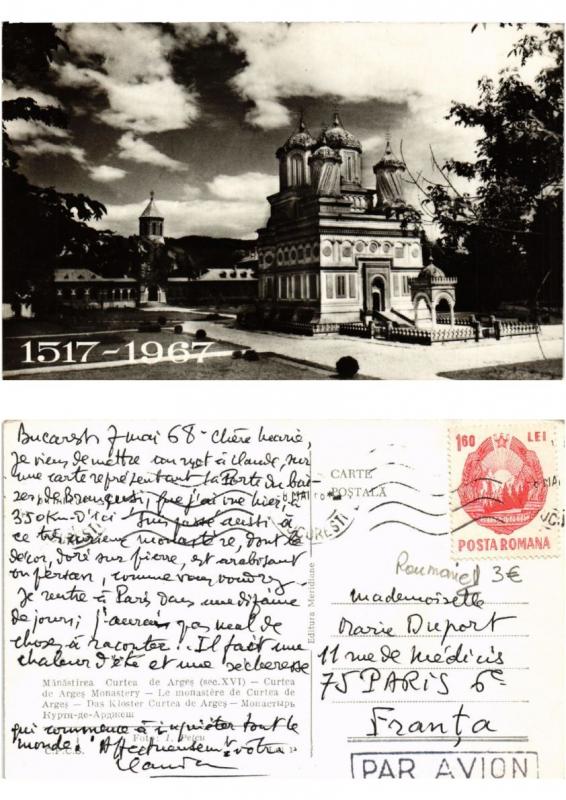 1517-1967
Bucarest 7 mai 68 - Chère Marie,
Je viens de mettre un mot à Claude, sur
une carte représentant la Porte du bai-
ser de Brancusi, que j'ai vue hier à
350 km d'ici. Suis passé aussi à
ce très curieux monastère, dont le
décor, doré sur pierre, est arabisant
ou persan, comme vous voudrez.
Je rentre à Paris dans une dizaine
de jours; j'aurai pas mal de
choses à raconter. Il fait une
chaleur d'été et une sécheresse
Mănăstirea Curtea de Argeș (sec. XVI) — Curtea
de Argeș Monastery — Le monastère de Curtea de
Argeș — Das Kloster Curtea de Argeș — Монастырь
Куртя-де-Арджеш
qui commence à inquiéter tout le
Foto: I. Petcu
monde. Affectueusement votre
C.P.C.B.
CARTE
POȘTALĂ
Editura Meridiane
1,60 LEI
POSTA ROMANA
BUCUREȘTI
Roumanie
3€
Mademoiselle
Marie Duport
11 rue de Médicis
75 PARIS 6e
Franța
PAR AVION